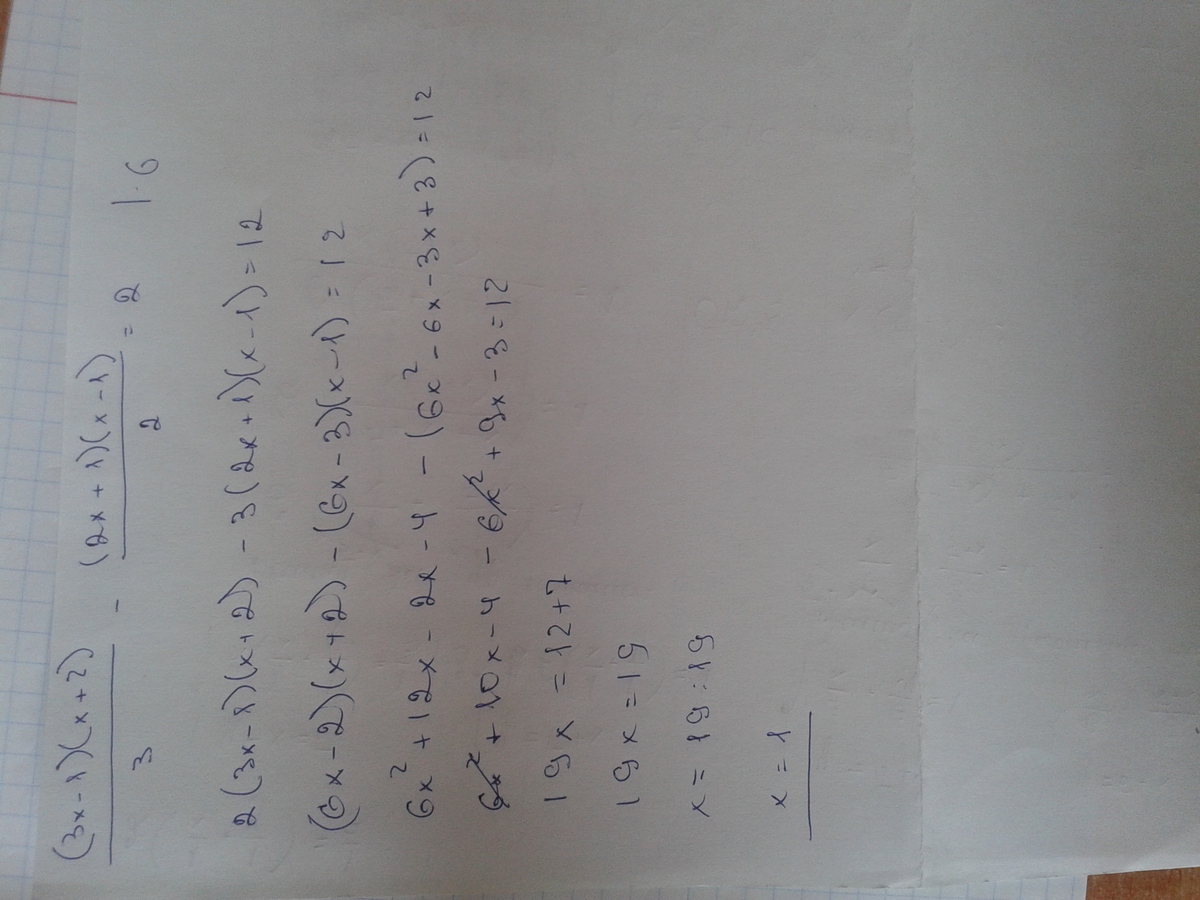 (3x-1)(x+2)/3 - (2x+1)(x-1)/2 = 2 |·6
2(3x-1)(x+2) - 3(2x+1)(x-1) = 12
(6x-2)(x+2) - (6x-3)(x-1) = 12
6x² + 12x - 2x - 4 - (6x² - 6x - 3x + 3) = 12
6x² + 10x - 4 - 6x² + 9x - 3 = 12
19x = 12+7
19x = 19
x = 19:19
x = 1